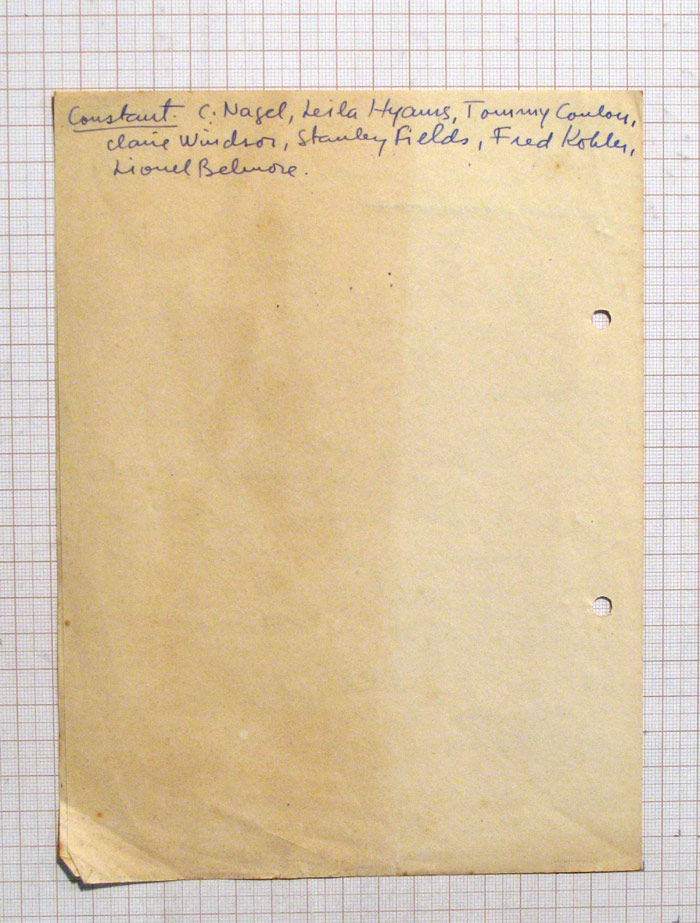 Constant. C. Nagel, Leila Hyams, Tommy Conlon,
Claire Windsor, Stanley Fields, Fred Kohler,
Lionel Belmore.